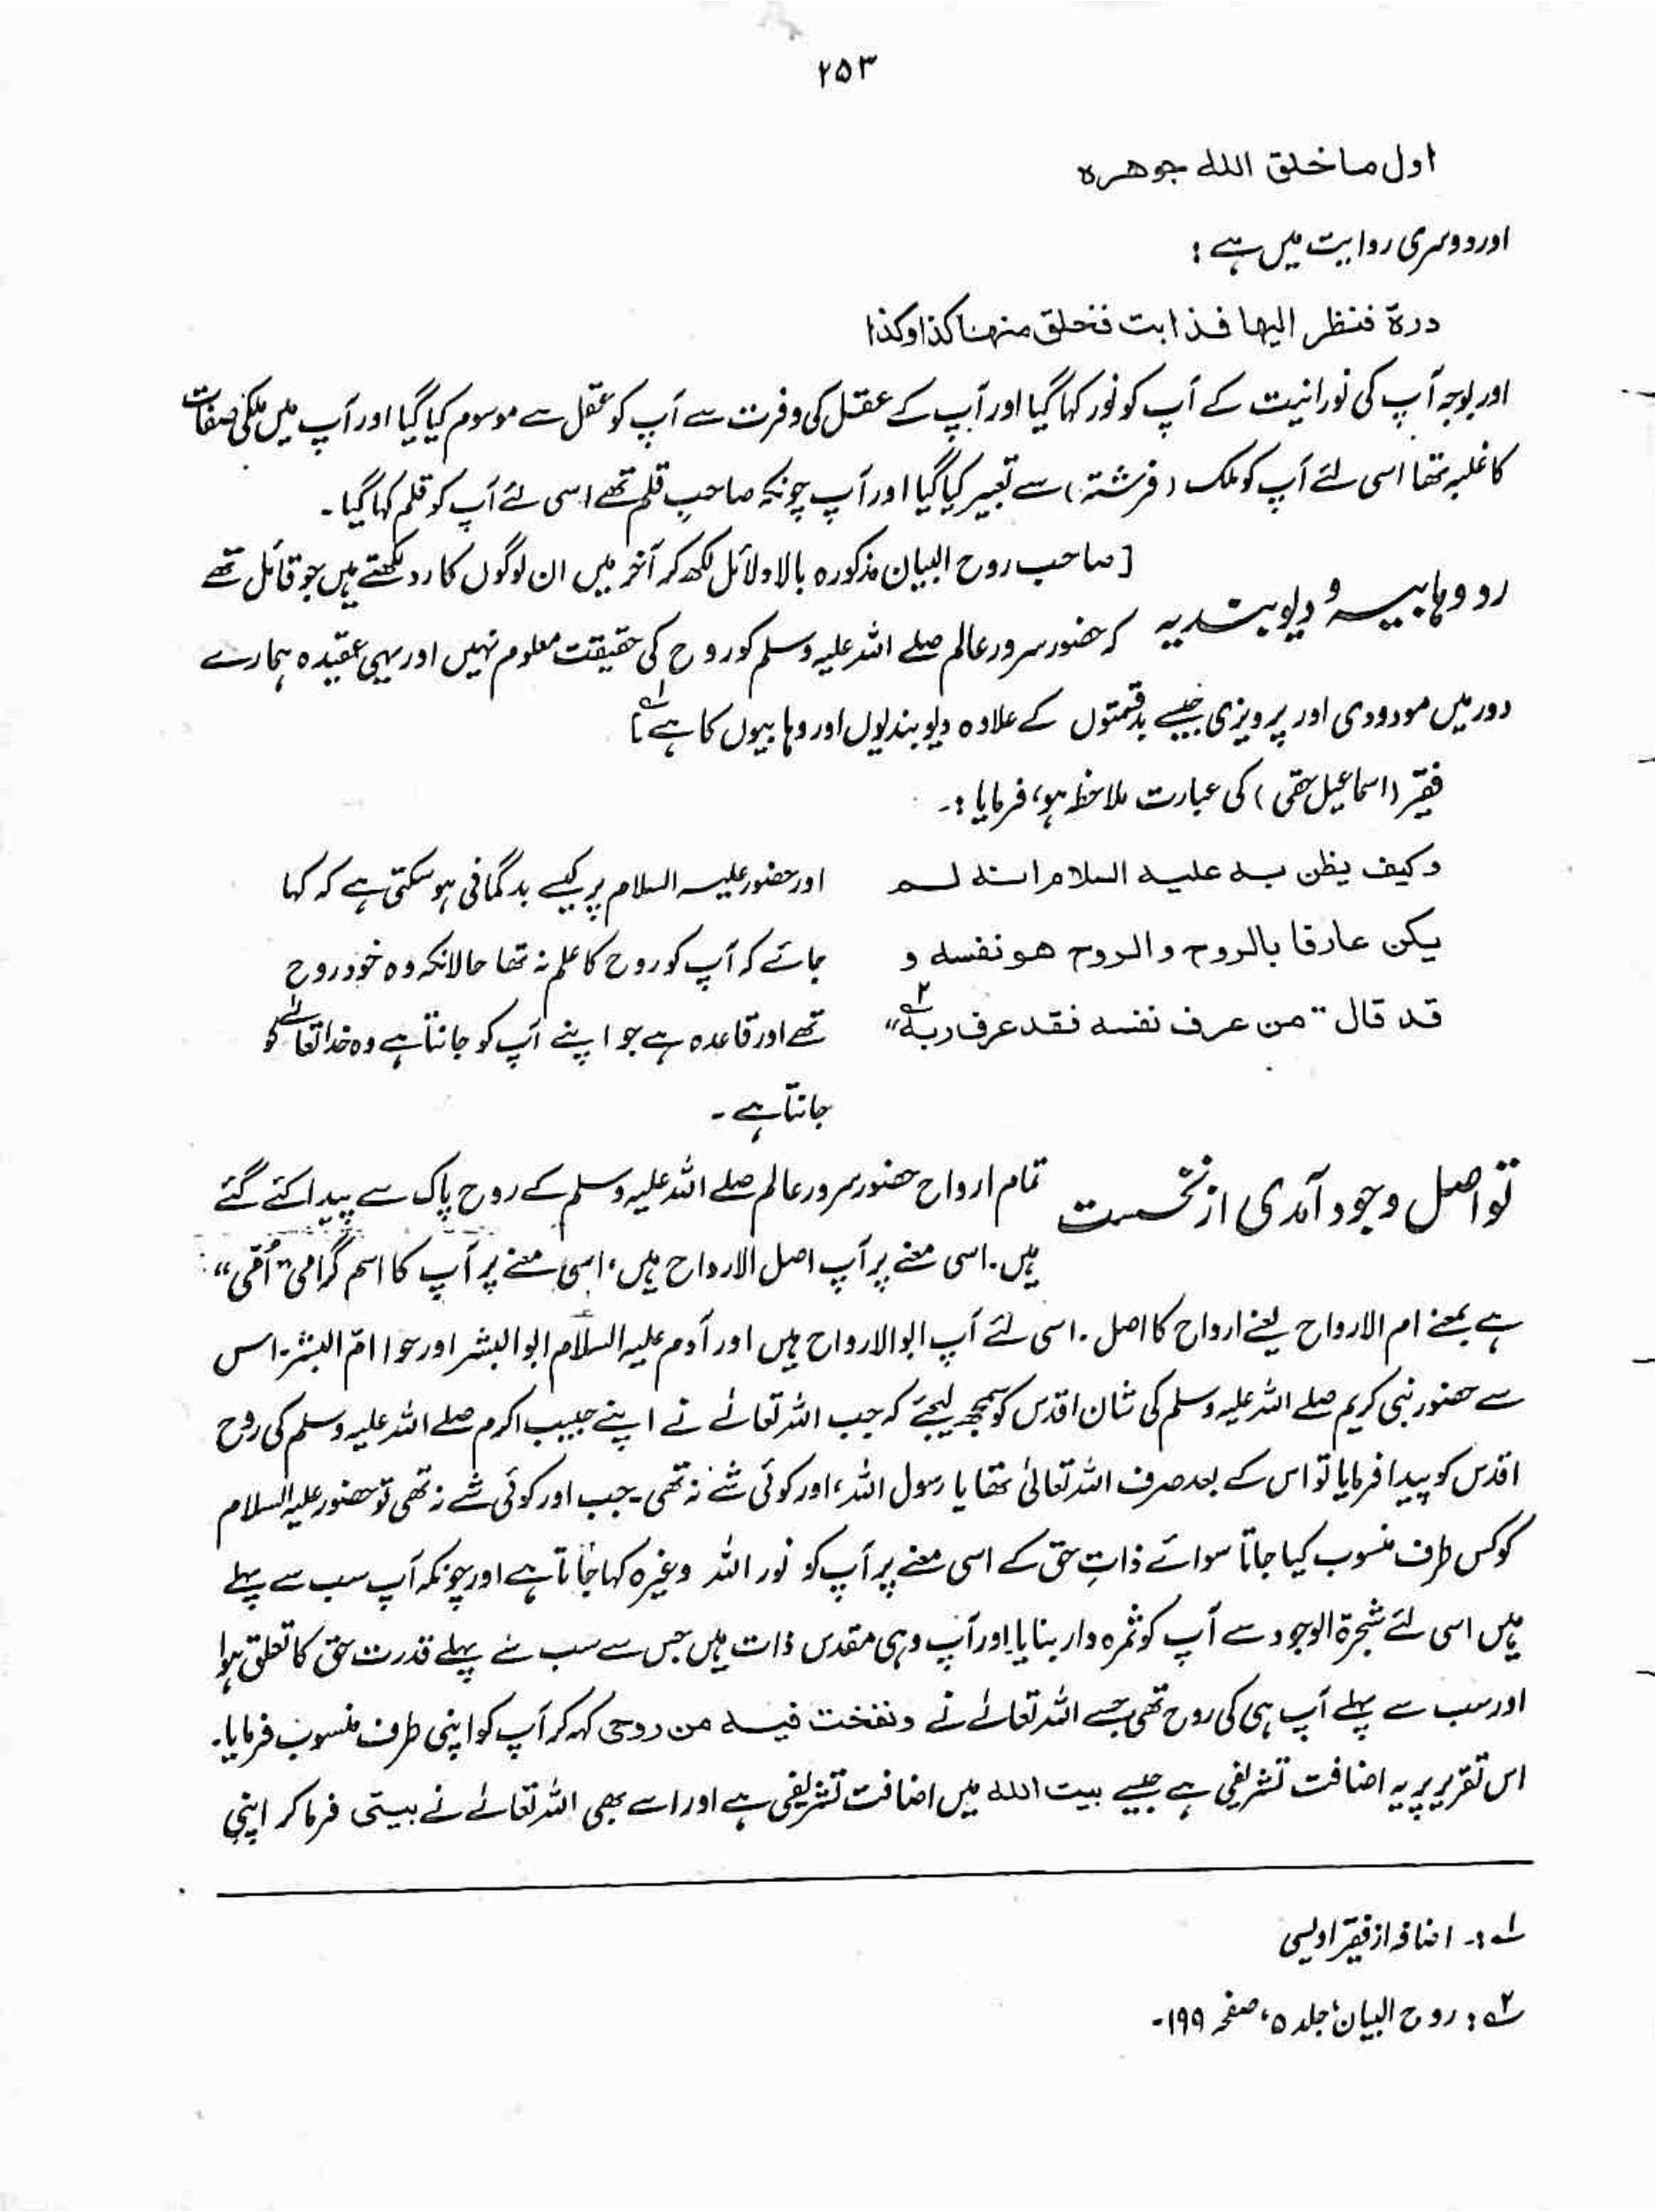 ۲۵۳
اول ما خلق الله جوهرہ
اور دوسری روایت میں ہے :
درة فنظر اليها فذابت فخلق منها كذا وكذا
اور بوجہ آپ کی نورانیت کے آپ کو نور کہا گیا اور آپ کے عقل کی وفرت سے آپ کو عقل سے موسوم کیا گیا اور آپ میں ملکی صفات
کا غلبہ تھا اسی لئے آپ کو ملک (فرشتہ) سے تعبیر کیا گیا اور آپ چونکہ صاحبِ قلم تھے اسی لئے آپ کو قلم کہا گیا۔
رد وہابیہ و دیوبندیہ
[صاحب روح البیان مذکورہ بالا دلائل لکھ کر آخر میں ان لوگوں کا رد لکھتے ہیں جو قائل تھے
کہ حضور سرور عالم صلے اللہ علیہ وسلم کو روح کی حقیقت معلوم نہیں اور یہی عقیدہ ہمارے
دور میں مودودی اور پرویزی جیسے بدقسمتوں کے علاوہ دیوبندیوں اور وہابیوں کا ہے ؂۱
فقیر (اسماعیل حقی) کی عبارت ملاحظہ ہو، فرمایا :۔
وكيف يظن به عليه السلام انه لم
يكن عارفا بالروح والروح هو نفسه و
قد قال "من عرف نفسه فقد عرف ربه" ؂۲
اور حضور علیہ السلام پر کیسے بدگمانی ہو سکتی ہے کہ کہا
جائے کہ آپ کو روح کا علم نہ تھا حالانکہ وہ خود روح
تھے اور قاعدہ ہے جو اپنے آپ کو جانتا ہے وہ خدا تعالےٰ کو
جانتا ہے ۔
تو اصل وجود آمدی از نخست
تمام ارواح حضور سرور عالم صلے اللہ علیہ وسلم کے روح پاک سے پیدا کئے گئے
ہیں۔ اسی معنے پر آپ اصل الارواح ہیں، اسی معنے پر آپ کا اسم گرامی "اُمّی"
ہے بمعنے ام الارواح یعنے ارواح کا اصل ۔ اسی لئے آپ ابوالارواح ہیں اور آدم علیہ السلام ابوالبشر اور حوا امّ البشر۔ اس
سے حضور نبی کریم صلے اللہ علیہ وسلم کی شان اقدس کو سمجھ لیجئے کہ جب اللہ تعالےٰ نے اپنے حبیب اکرم صلے اللہ علیہ وسلم کی روح
اقدس کو پیدا فرمایا تو اس کے بعد صرف اللہ تعالیٰ تھا یا رسول اللہ، اور کوئی شے نہ تھی۔ جب اور کوئی شے نہ تھی تو حضور علیہ السلام
کو کس طرف منسوب کیا جاتا سوائے ذاتِ حق کے اسی معنے پر آپ کو نور اللہ وغیرہ کہا جاتا ہے اور چونکہ آپ سب سے پہلے
ہیں اسی لئے شجرۃ الوجود سے آپ کو ثمرہ دار بنایا اور آپ وہی مقدس ذات ہیں جس سے سب سے پہلے قدرت حق کا تعلق ہوا
اور سب سے پہلے آپ ہی کی روح تھی جسے اللہ تعالےٰ نے ونفخت فيه من روحی کہہ کر آپ کو اپنی طرف منسوب فرمایا۔
اس تقریر پر یہ اضافت تشریفی ہے جیسے بیت اللہ میں اضافت تشریفی ہے اور اسے بھی اللہ تعالےٰ نے بیتی فرما کر اپنی
؂۱ :۔ اضافہ از فقیر اویسی
؂۲ : روح البیان، جلد ۵، صفحہ ۱۹۹۔